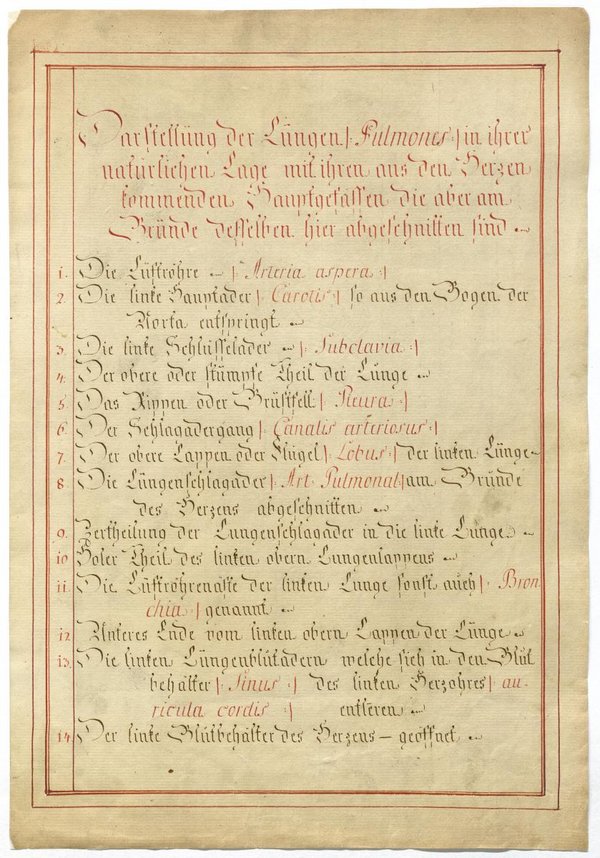 Darstellung der Lungen |: Pulmones :| in ihrer
natürlichen Lage mit ihren aus den Herzen
kommenden Hauptgefässen die aber am
Grunde desselben hier abgeschnitten sind
1. Die Luftröhre |: Arteria aspera :|
2. Die linke Hauptader |: Carotis :| so aus den Bogen der
Aorta entspringt
3. Die linke Schlüsselader |: Subclavia :|
4. Der obere oder stumpfe Theil der Lunge
5. Das Rippen oder Brustfell |: Pleura :|
6. Der Schlagadergang |: Canalis arteriosus :|
7. Der obere Lappen oder Flügel |: Lobus :| der linken Lunge
8. Die Lungenschlagader |: Art. Pulmonal :| am Grunde
des Herzens abgeschnitten
9. Zertheilung der Lungenschlagader in die linke Lunge
10. Holer Theil des linken obern Lungenlappens
11. Die Luftröhrenäste der linken Lunge sonst auch |: Bron
chia :| genannt
12. Unteres Ende vom linken obern Lappen der Lunge
13. Die linken Lungenblutadern welche sich in den Blut
behälter |: Sinus :| des linken Herzohres |: au-
ricula cordis :| entleren
14. Der linke Blutbehälter des Herzens – geöffnet